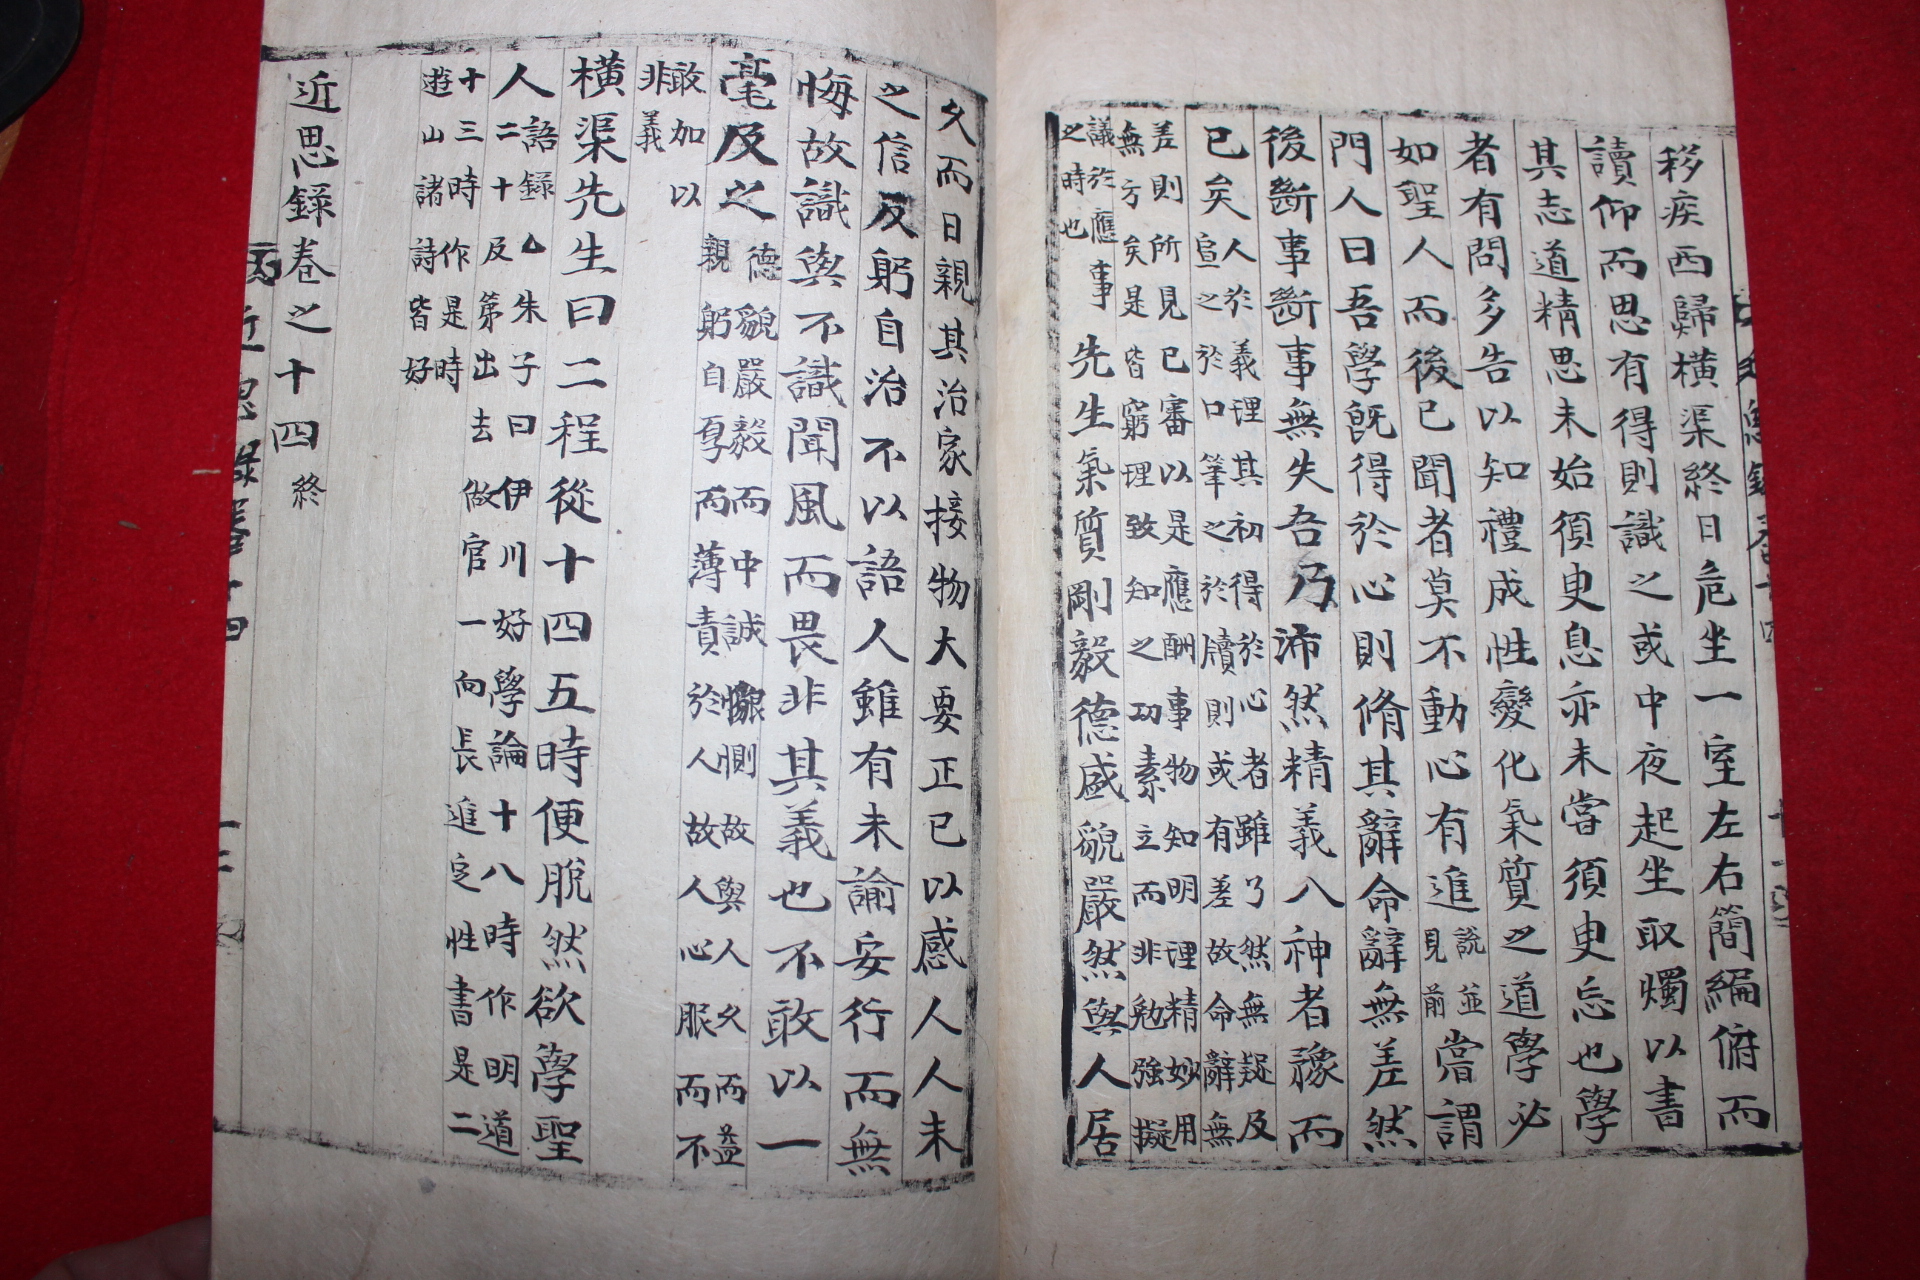 移疾西歸橫渠終日危坐一室左右簡編俯而
讀仰而思有得則識之或中夜起坐取燭以書
其志道精思未始須臾息亦未嘗須臾忘也學
者有問多告以知禮成性變化氣質之道學必
如聖人而後已聞者莫不動心有進說並見前嘗謂
門人曰吾學旣得於心則脩其辭命辭無差然
後斷事斷事無失吾乃沛然精義入神者豫而
已矣人於義理其初得於心者雖了然無疑及
宣之於口筆之於牘則或有差故命辭無
差則所見已審以是應酬事物知明理精妙用
無方矣是皆窮理致知之功素立而非勉強擬
議於應事
之時也先生氣質剛毅德盛貌嚴然與人居
久而日親其治家接物大要正已以感人人未
之信反躬自治不以語人雖有未諭安行而無
悔故識與不識聞風而畏非其義也不敢以一
毫及之德貌嚴毅而中誠懇惻故與人久而益
親躬自厚而薄責於人故人心服而不
敢加以
非義
橫渠先生曰二程從十四五時便脫然欲學聖
人語録△朱子曰伊川好學論十八時作明道
二十及第出去做官一向長進定性書是二
十三時作是時
遊山諸詩皆好
近思錄卷之十四 終
近思錄卷十四